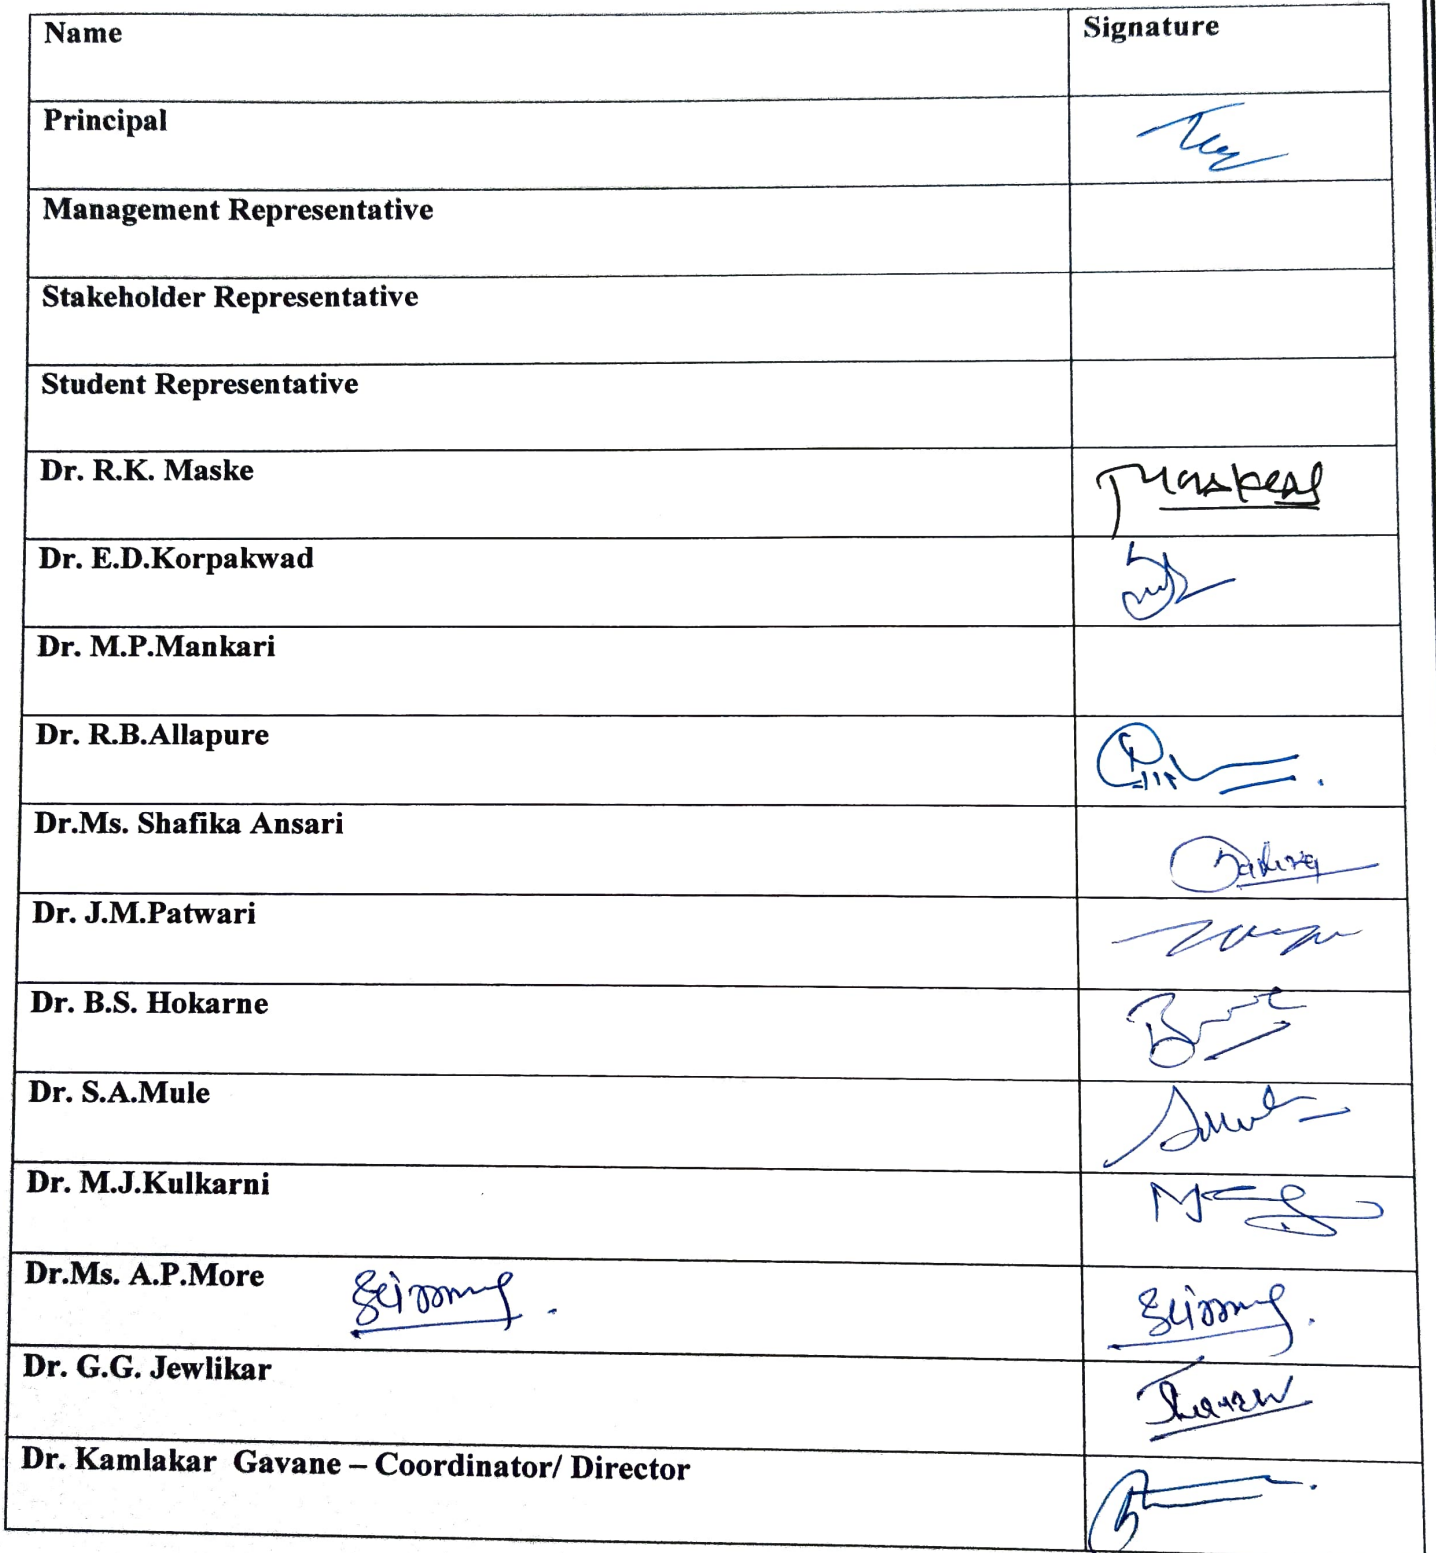 Name Signature
Principal
Management Representative
Stakeholder Representative
Student Representative
Dr. R.K. Maske
Dr. E.D.Korpakwad
Dr. M.P.Mankari
Dr. R.B.Allapure
Dr.Ms. Shafika Ansari
Dr. J.M.Patwari
Dr. B.S. Hokarne
Dr. S.A.Mule
Dr. M.J.Kulkarni
Dr.Ms. A.P.More
Dr. G.G. Jewlikar
Dr. Kamlakar Gavane – Coordinator/ Director